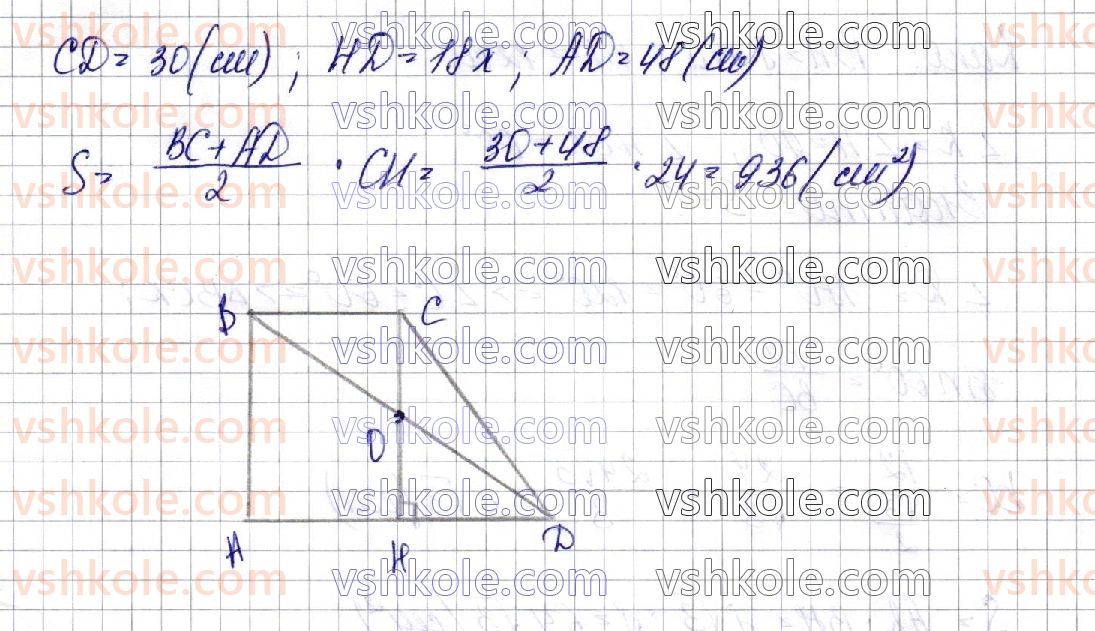 CD = 30 (см) ; HD = 18x ; AD = 48 (см)
S = (BC + AD)/2 · CH = (30 + 48)/2 · 24 = 936 (см²)
B C
O
A H D
vshkole.com